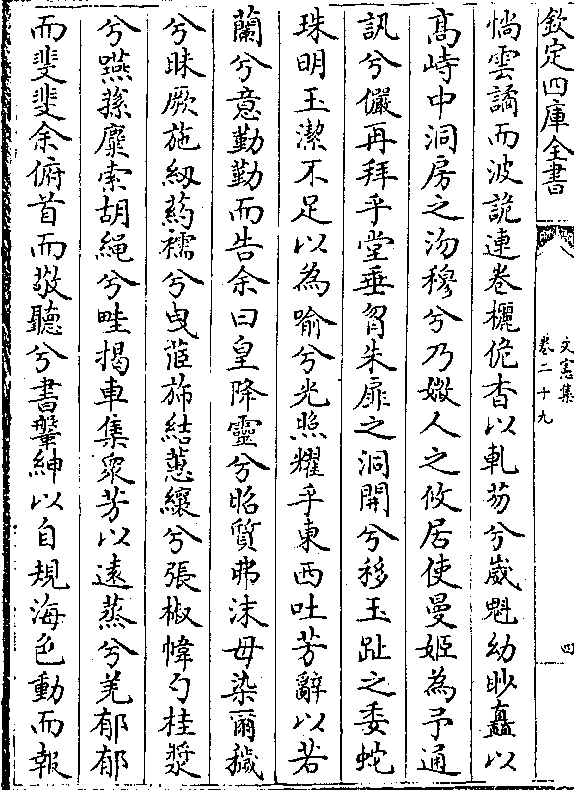 欽定四庫全書
文憲集
卷二十九
四
惝雲譎而波詭連卷欐佹杳以軋芴兮崴魁幼眇矗以
髙峙中洞房之沕穆兮乃媺人之攸居使曼姬為予通
訊兮儼再拜乎堂垂曶朱扉之洞開兮移玉趾之委蛇
珠明玉潔不足以為喻兮光照耀乎東西吐芳辭以若
蘭兮意勤勤而告余曰皇降靈兮昭質弗沬毋染爾穢
兮昧厥施紉葯襦兮曳茝斾結蕙纕兮張椒幃勺桂漿
兮嚥蓀糜索胡繩兮畦揭車集衆芳以遠蒸兮羌郁郁
而斐斐余俯首而敬聽兮書鞶紳以自規海色動而報